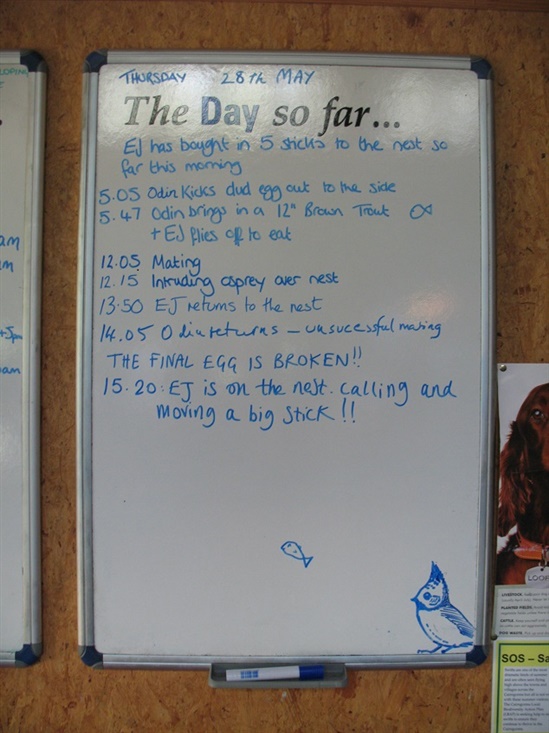 THURSDAY 28TH MAY
The Day so far...
EJ has bought in 5 sticks to the nest so
far this morning
5.05 Odin Kicks dud egg out to the side
5.47 Odin brings in a 12" Brown Trout
+ EJ flies off to eat
12.05 Mating
12.15 Intruding osprey over nest
13.50 EJ returns to the nest
14.05 Odin returns – unsuccessful mating
THE FINAL EGG IS BROKEN!!
15.20: EJ is on the nest. calling and
moving a big stick!!
am
m
am
LIVESTOCK
CATTLE
DOG WASTE
SOS – Sa